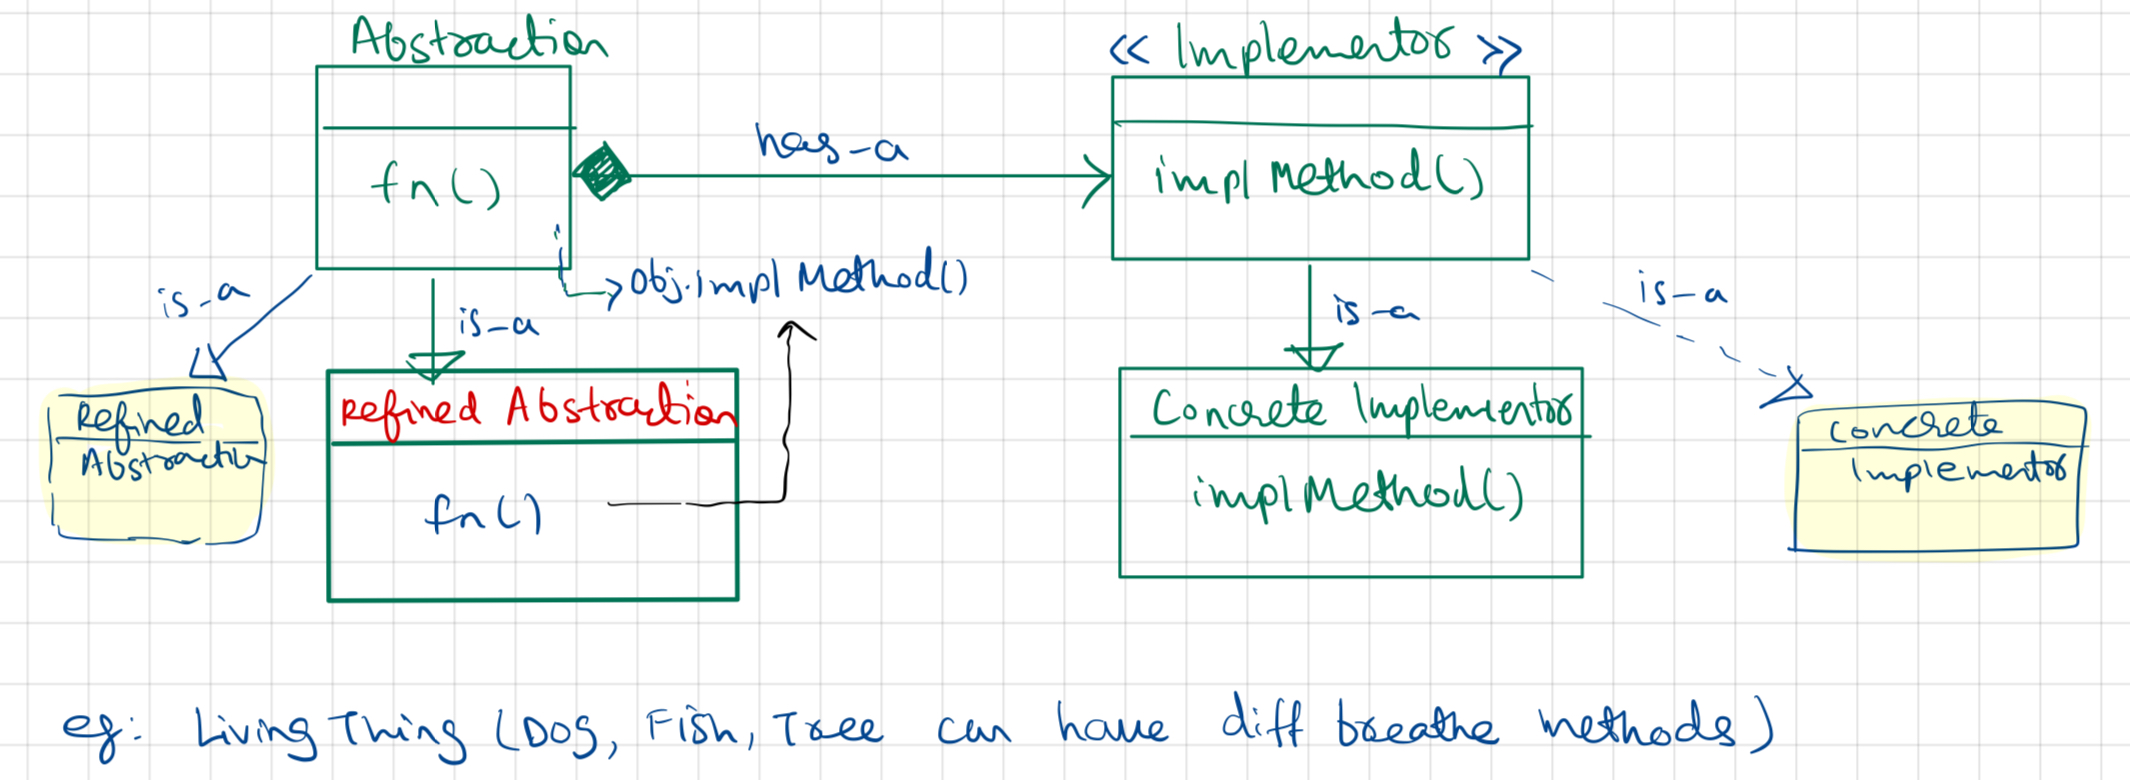 Abstraction
<< Implementor >>
fn()
has-a
implMethod()
is-a
obj.implMethod()
is-a
is-a
is-a
Refined
Abstraction
Refined Abstraction
fn()
Concrete Implementor
implMethod()
Concrete
Implementor
eg: Living Thing (Dog, Fish, Tree can have diff breathe methods)